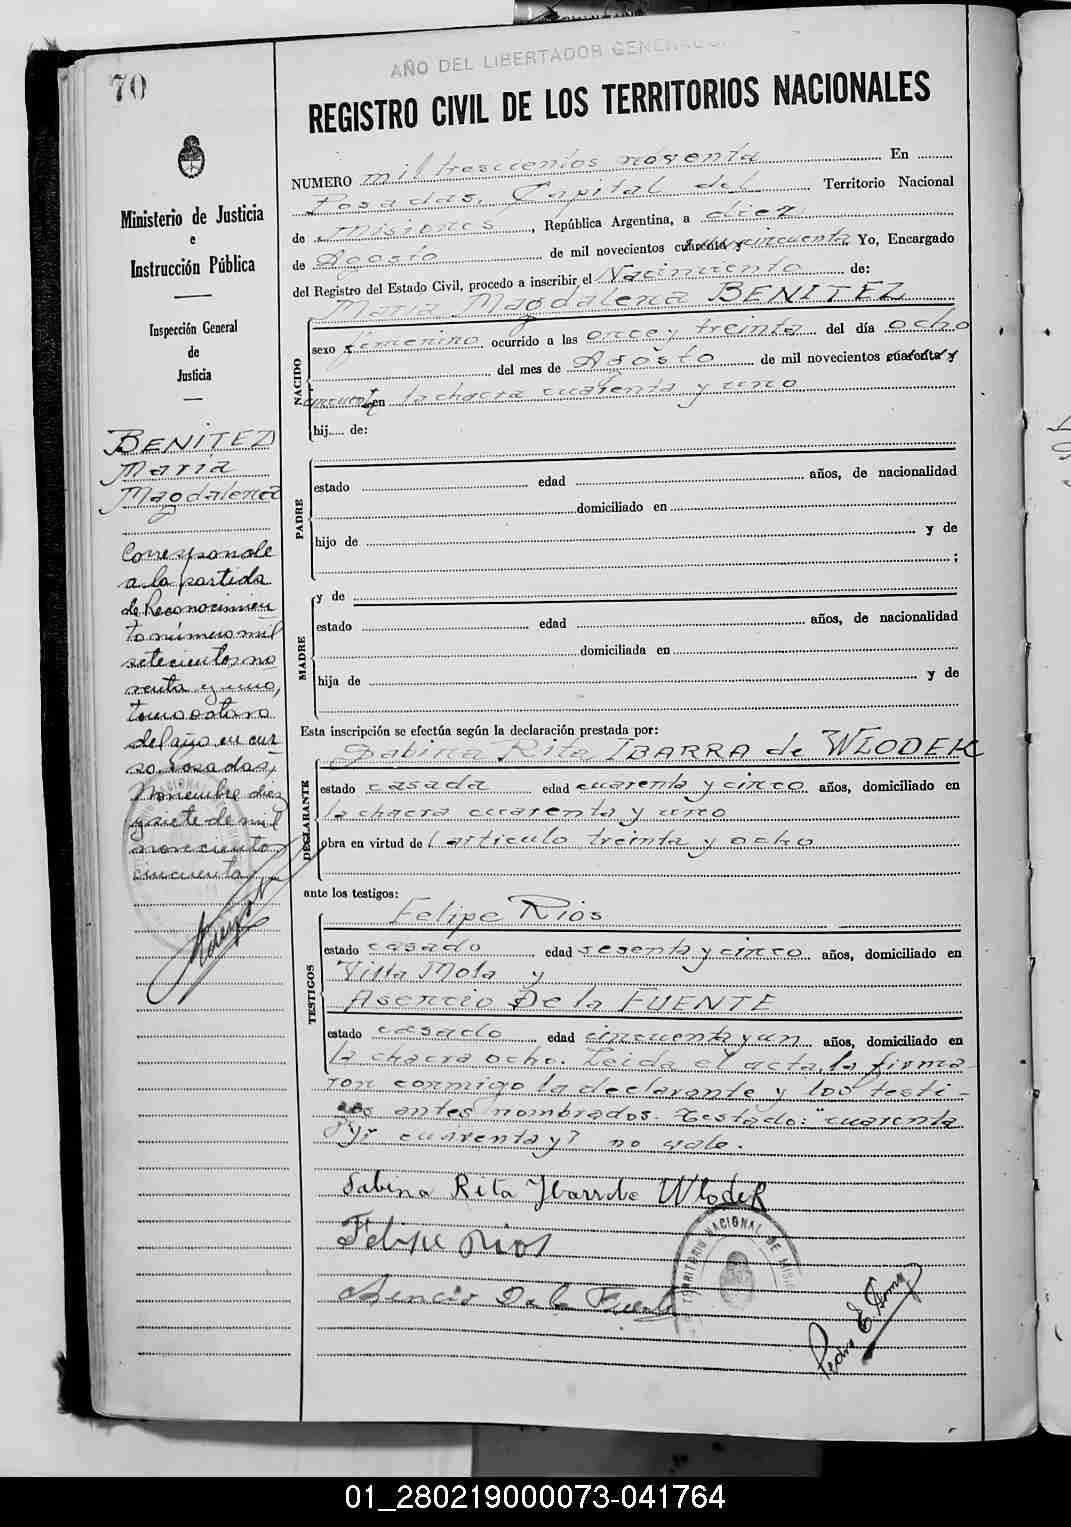 70
AÑO DEL LIBERTADOR GENERAL
REGISTRO CIVIL DE LOS TERRITORIOS NACIONALES
Ministerio de Justicia
e
Instrucción Pública
Inspección General
de
Justicia
BENITEZ
Maria
Magdalena
Corresponde
a la partida
de Reconocimien
to número mil
setecientos no
venta y uno,
tomo octavo
del año en cur
so. Posadas,
Noviembre diez
y siete de mil
novecientos
cincuenta
NUMERO mil trescientos noventa En
Posadas, Capital del Territorio Nacional
de Misiones, República Argentina, a diez
de Agosto de mil novecientos cuarenta y cincuenta Yo, Encargado
del Registro del Estado Civil, procedo a inscribir el Nacimiento de:
Maria Magdalena BENITEZ
NACIDO
sexo femenino ocurrido a las once y treinta del día ocho
del mes de Agosto de mil novecientos cuarenta y
cincuenta en la chacra cuarenta y uno
hij..... de:
PADRE
estado edad años, de nacionalidad
domiciliado en
hijo de y de
;
MADRE
y de
estado edad años, de nacionalidad
domiciliada en
hija de y de
Esta inscripción se efectúa según la declaración prestada por:
Sabina Rita IBARRA de WLODEK
DECLARANTE
estado casada edad cuarenta y cinco años, domiciliado en
la chacra cuarenta y uno
obra en virtud del artículo treinta y ocho
ante los testigos:
Felipe Rios
TESTIGOS
estado casado edad sesenta y cinco años, domiciliado en
Villa Mola y
Asencio De la FUENTE
estado casado edad cincuenta y un años, domiciliado en
la chacra ocho. Leida el acta, la firma-
ron conmigo la declarante y los testi-
gos antes nombrados. Testado: "cuarenta
y"; cuarenta y" no vale.
Sabina Rita Ybarra de Wlodek
Felipe Rios
Asencio De la Fuente
TERRITORIO NACIONAL DE MISIONES
Pedro E
01_280219000073-041764